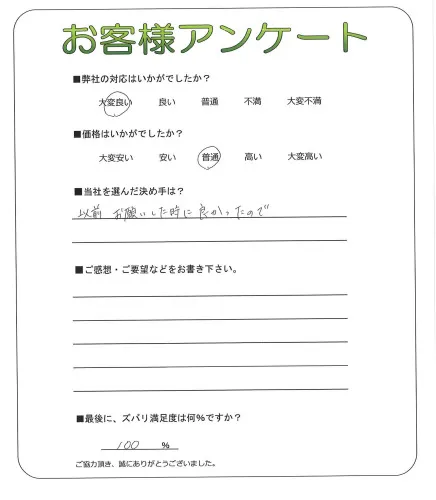 お客様アンケート
■弊社の対応はいかがでしたか？
大変良い 良い 普通 不満 大変不満
■価格はいかがでしたか？
大変安い 安い 普通 高い 大変高い
■当社を選んだ決め手は？
以前 お願いした時に良かったので
■ご感想・ご要望などをお書き下さい。
■最後に、ズバリ満足度は何%ですか？
100 %
ご協力頂き、誠にありがとうございました。